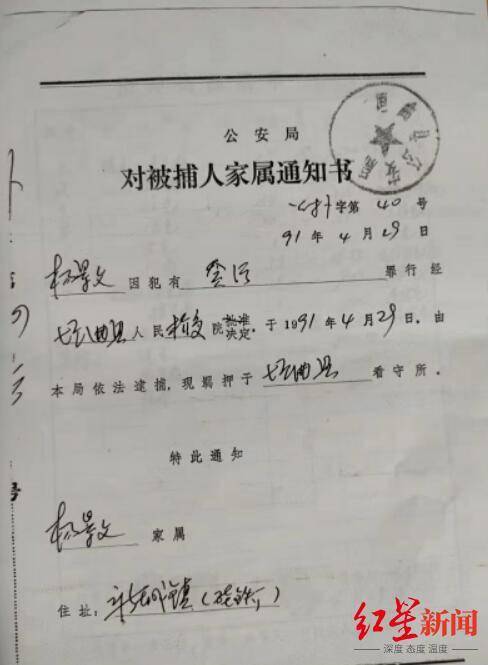 公安局
对被捕人家属通知书
字第 40 号
91 年 4 月 29 日
杨景文 因犯有 贪污 罪行经
垣曲县 人民 检察 院 批准 决定，于 1991 年 4 月 29 日，由
本局依法逮捕，现羁押于 垣曲县 看守所。
特此通知
杨景文 家属
住址：
红星新闻
深度 态度 温度
垣曲县公安局